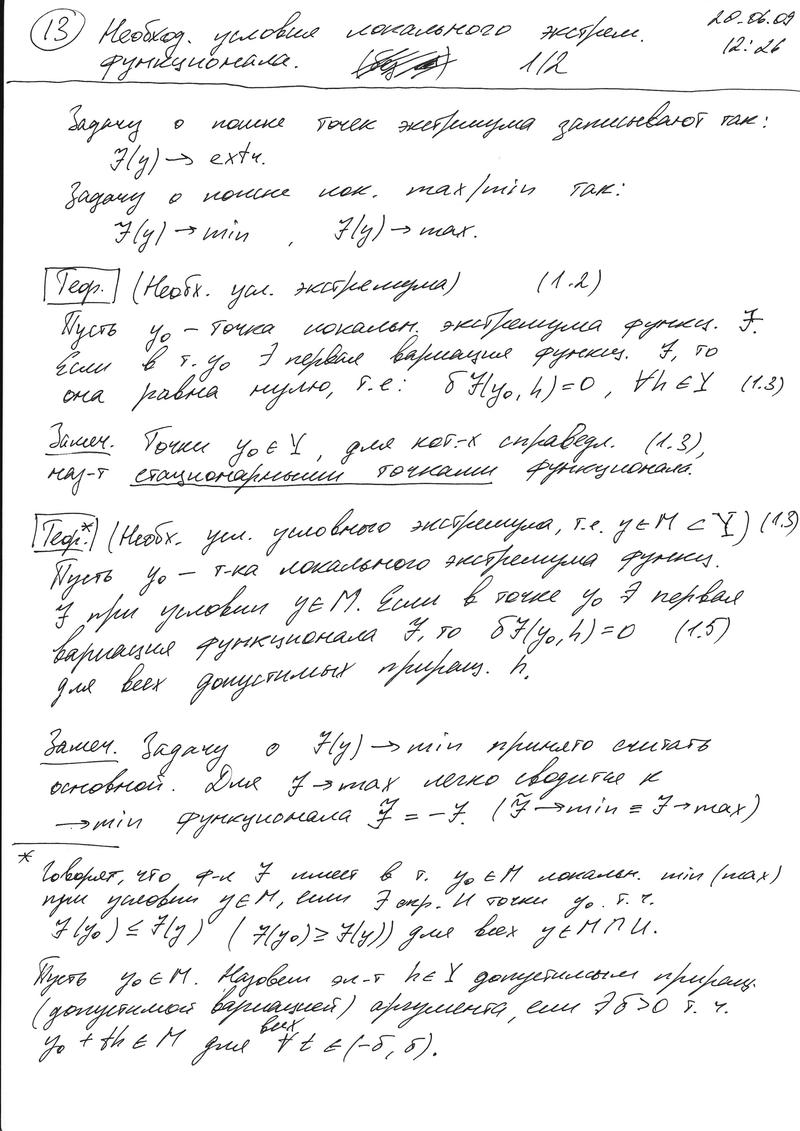 20.06.09
12:26
13 Необход. условия локального экстрем.
функционала. 1/2
Задачу о поиске точек экстремума записывают так:
J(y) → extr.
Задачу о поиске лок. max/min так:
J(y) → min , J(y) → max.
Теор. (Необх. усл. экстремума) (1.2)
Пусть y₀ – точка локальн. экстремума функц. J.
Если в т. y₀ ∃ первая вариация функц. J, то
она равна нулю, т.е: δJ(y₀, h) = 0 , ∀h ∈ Y (1.3)
Замеч. Точки y₀ ∈ Y, для кот-х справедл. (1.3),
наз-т стационарными точками функционала.
Теор.* (Необх. усл. условного экстремума, т.е. y ∈ M ⊂ Y) (1.3)
Пусть y₀ – т-ка локального экстремума функц.
J при условии y ∈ M. Если в точке y₀ ∃ первая
вариация функционала J, то δJ(y₀, h) = 0 (1.5)
для всех допустимых приращ. h.
Замеч. Задачу о J(y) → min принято считать
основной. Для J → max легко сводится к
→ min функционала J̃ = -J. (J̃ → min ≡ J → max)
* Говорят, что ф-л J имеет в т. y₀ ∈ M локальн. min (max)
при условии y ∈ M, если ∃ окр. U точки y₀ т.ч.
J(y₀) ≤ J(y) (J(y₀) ≥ J(y)) для всех y ∈ M ∩ U.
Пусть y₀ ∈ M. Назовем эл-т h ∈ Y допустимым приращ.
(допустимой вариацией) аргумента, если ∃ δ > 0 т.ч.
y₀ + th ∈ M для всех ∀ t ∈ (-δ, δ).